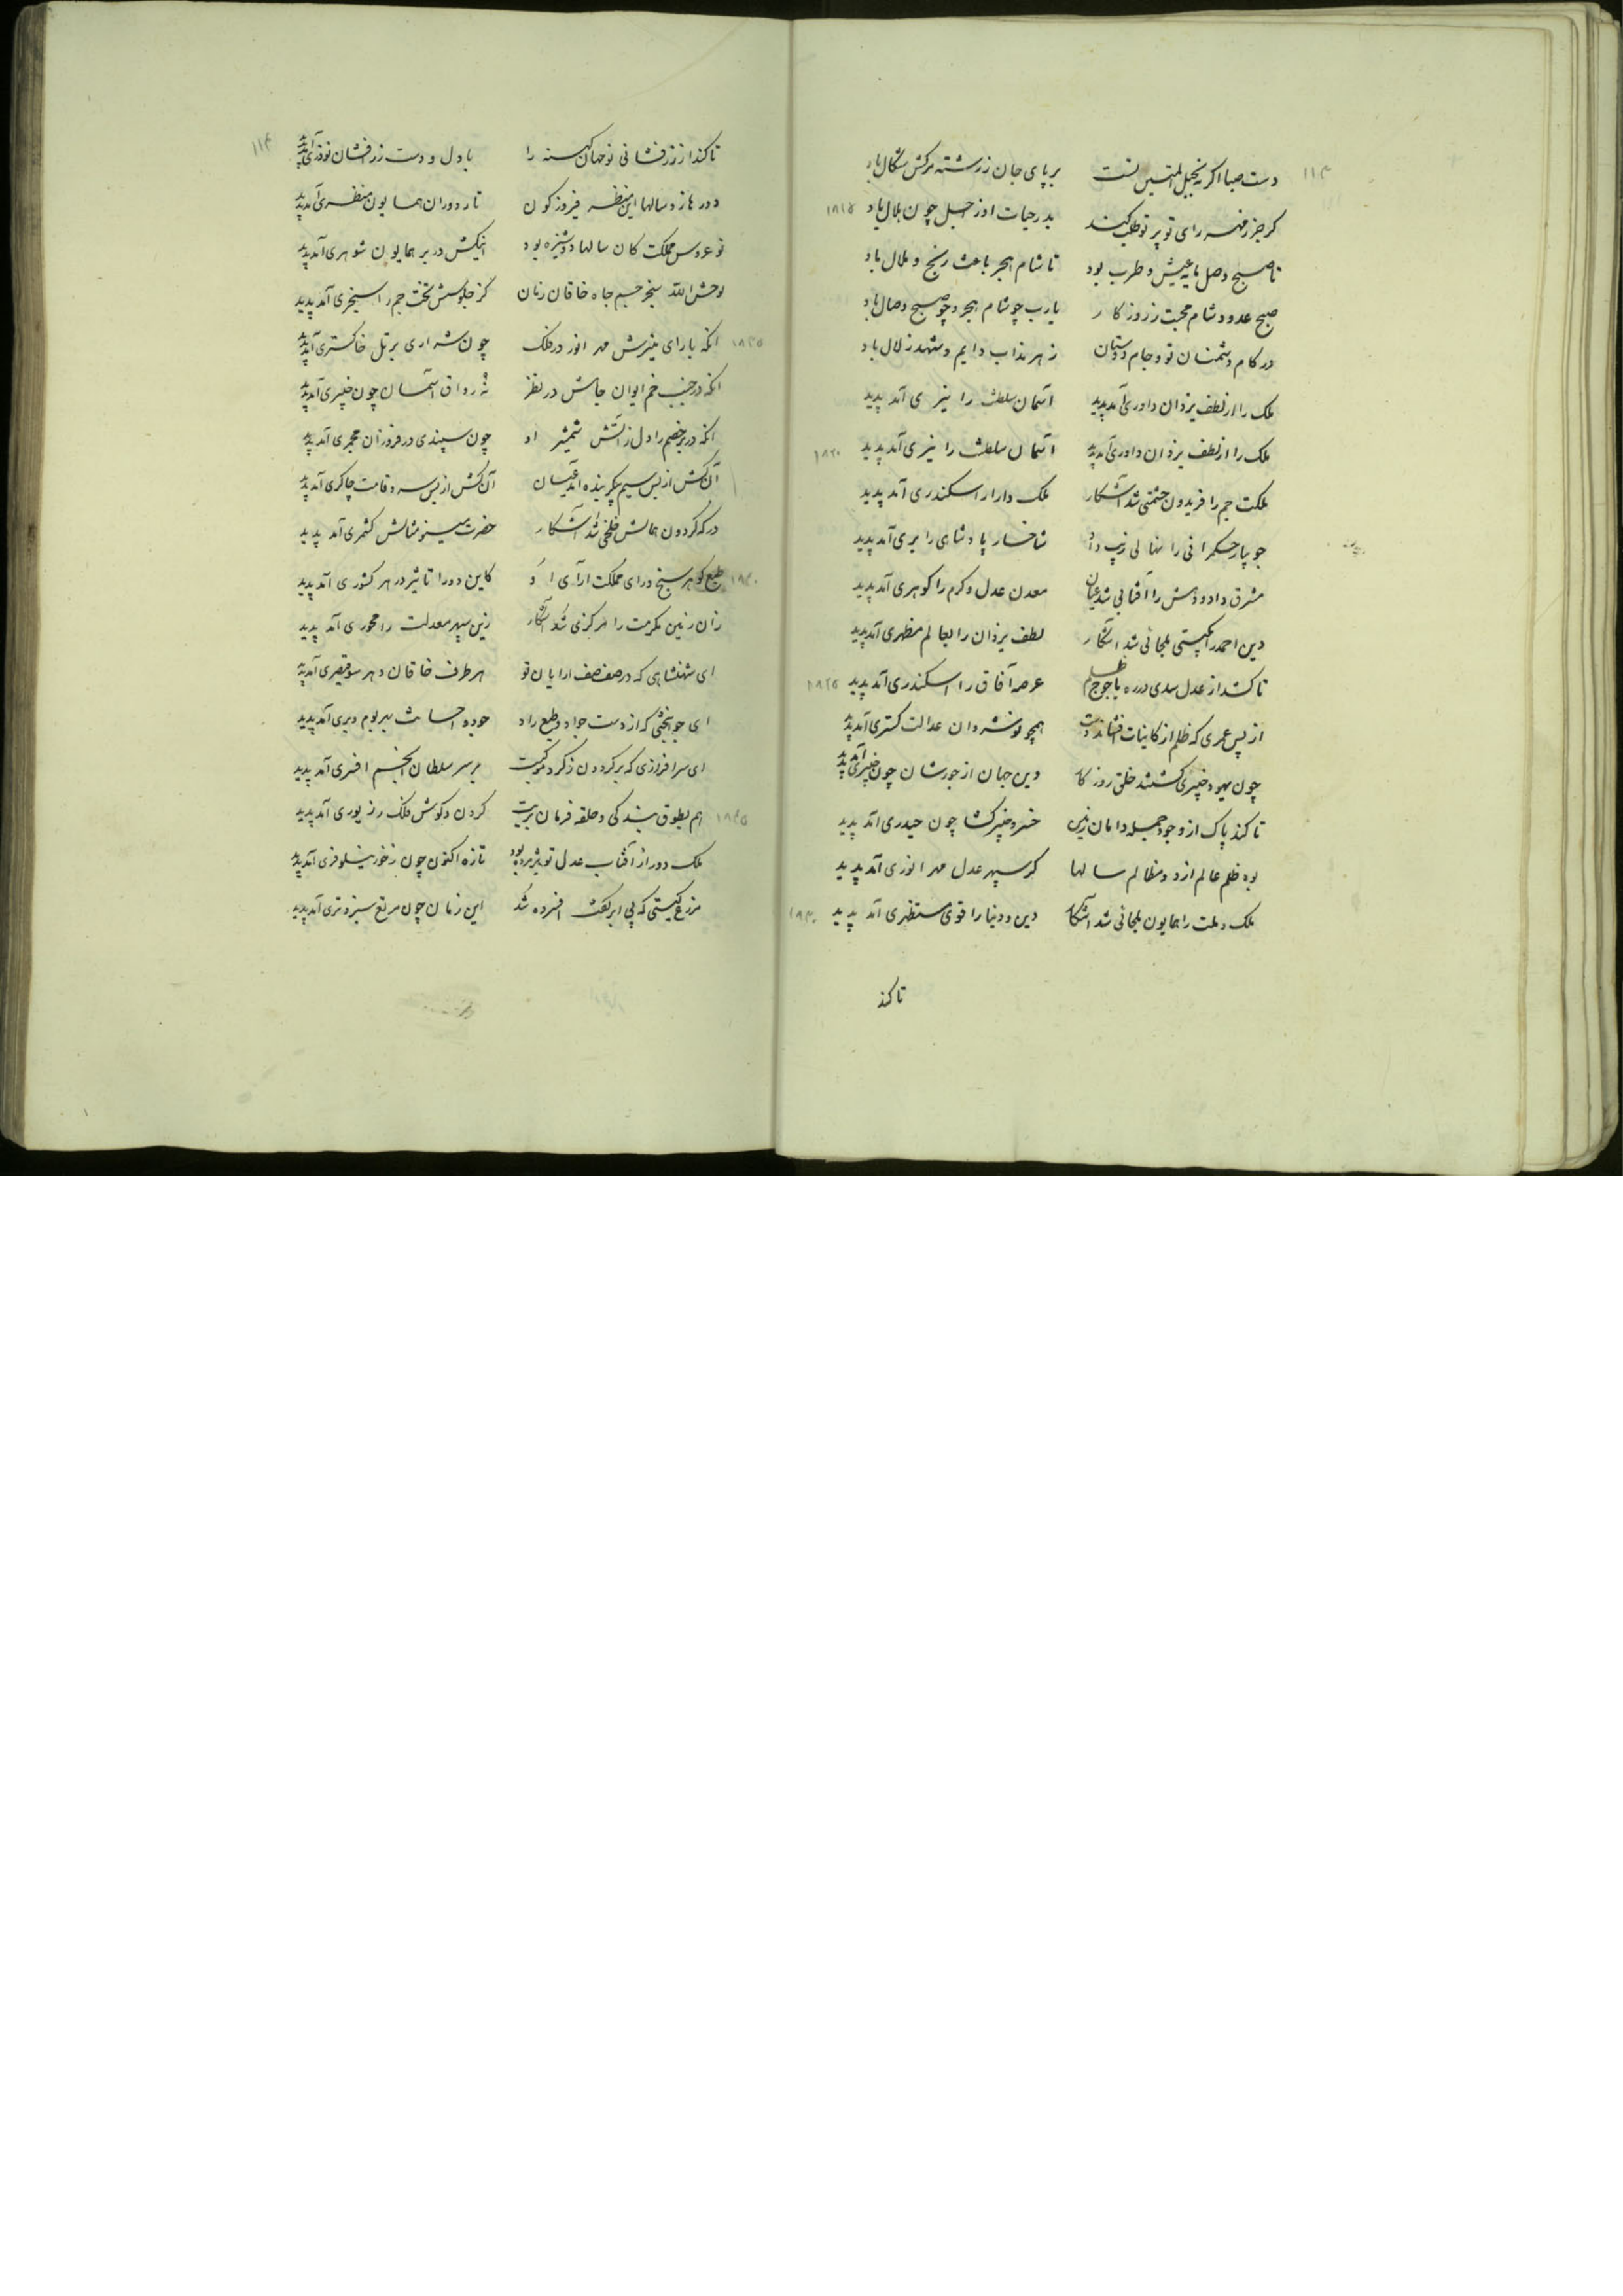 ۱۱۳
دست صبا اگر نه بحبل المتین تست بر پای جان ز رشته مرکش شکال باد
گر جز ز مهر رای تو پرتو طلب کند بدر حیات او ز اجل چون هلال باد ۱۸۱۵
تا صبح وصل مایه عیش و طرب بود تا شام هجر باعث رنج و ملال باد
صبح عدو و شام محبت ز روزگار یارب چو شام هجر و چو صبح وصال باد
در کام دشمنان تو و جام دوستان زهر مذاب دایم و شهد زلال باد
ملک را از لطف یزدان داوری آمد پدید آسمان سلطنت را نیری آمد پدید
ملک را از لطف یزدان داوری آمد پدید آسمان سلطنت را نیری آمد پدید ۱۸۲۰
ملکت جم را فریدون حشمتی شد آشکار ملک دارا را سکندری آمد پدید
جویبار حکمرانی را نهالی زیب داد شاخسار پادشاهی را بری آمد پدید
مشرق داد و دهش را آفتابی شد عیان معدن عدل و کرم را گوهری آمد پدید
دین احمد را بگیتی ملجائی شد آشکار لطف یزدان را بعالم مظهری آمد پدید
تا کشد از عدل سدی در ره یاجوج ظلم عرصه آفاق را اسکندری آمد پدید ۱۸۲۵
از پس عمری که ظلم از کاینات افشاند دست همچو نوشروان عدالت گستری آمد پدید
چون یهود خیبری گشتند خلق روزگار وین جهان از جورشان چون خیبری آمد پدید
تا کند پاک از وجود جمله دامان زمین خسرو خیبرگشا چون حیدری آمد پدید
بود ظلم عالم از دود مظالم سالها کز سپهر عدل مهر انوری آمد پدید
ملک و ملت را همایون ملجائی شد آشکار دین و دنیا را قوی مستظهری آمد پدید ۱۸۳۰
تا کند
۱۱۴
تا کند از زرفشانی نو جهان کهنه را با دل و دست زرافشان نوذری آمد پدید
دورها زد سالها این منظر فیروزه گون تا ز دوران همایون منظری آمد پدید
نو عروس مملکت کان سالها دوشیزه بود اینکش در بر همایون شوهری آمد پدید
لوحش الله سنجر جم جاه خاقان زنان کز جلوسش تخت جم را سنجری آمد پدید
آنکه با رای منیرش مهر انور در فلک چون شراری بر تل خاکستری آمد پدید ۱۸۳۵
آنکه در جنب خم ایوان جاهش در نظر نه رواق آسمان چون چنبری آمد پدید
آنکه در بر خصم را دل ز آتش شمشیر او چون سپندی در فروزان مجمری آمد پدید
آن کش از بس سیم پیکر بنده آمد عیان آن کش از بس سرو قامت چاکری آمد پدید
درگه گردون همالش خلخی شد آشکار حضرت مینو مثالش کشمری آمد پدید
طبع گوهر سنج و رای مملکت آرای او کاین دو را تاثیر در هر کشوری آمد پدید ۱۸۴۰
زان زمین مکرمت را مرکزی شد آشکار زین سپهر معدلت را محوری آمد پدید
ای شهنشاهی که در صف صف آرایان تو هر طرف خاقان و هر سو قیصری آمد پدید
ای جوانبختی که از دست جواد و طبع راد جود و احسانت بهر بوم و بری آمد پدید
ای سرافرازی که بر گردون ز گرد موکبت بر سر سلطان انجم افسری آمد پدید
هم بطوق بندگی و حلقه فرمان بریت گردن و گوش فلک را زیوری آمد پدید ۱۸۴۵
ملک دور از آفتاب عدل تو پژمرده بود تازه اکنون چون ز خور نیلوفری آمد پدید
مزرع گیتی که بی ابر کفت افسرده شد این زمان چون مرتع سبز و تری آمد پدید